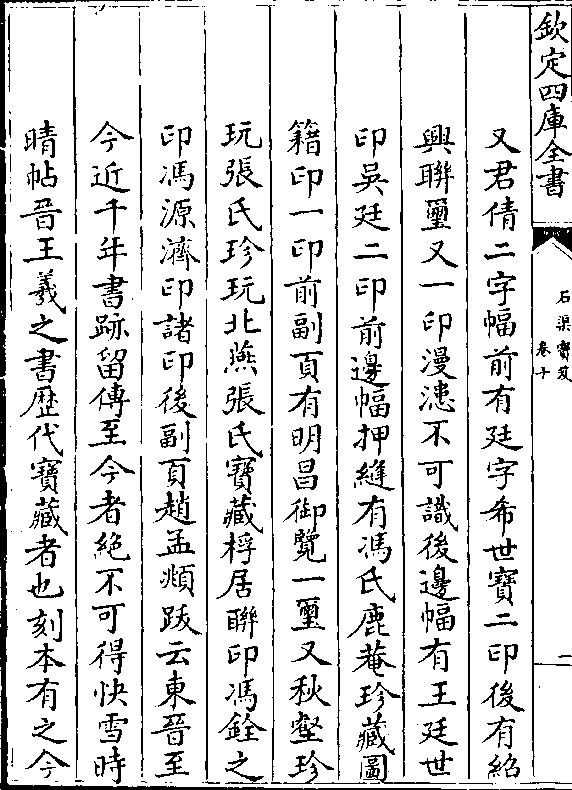 欽定四庫全書
石渠寳笈
卷十
二
又君倩二字幅前有廷字希世寶二印後有紹
興聯璽又一印漫漶不可識後邊幅有王廷世
印吳廷二印前邊幅押縫有馮氏鹿菴珍藏圖
籍印一印前副頁有明昌御覽一璽又秋壑珍
玩張氏珍玩北燕張氏寶藏桴居聨印馮銓之
印馮源濟印諸印後副頁趙孟頫跋云東晉至
今近千年書跡留傳至今者絶不可得快雪時
晴帖晉王羲之書歴代寶藏者也刻本有之今